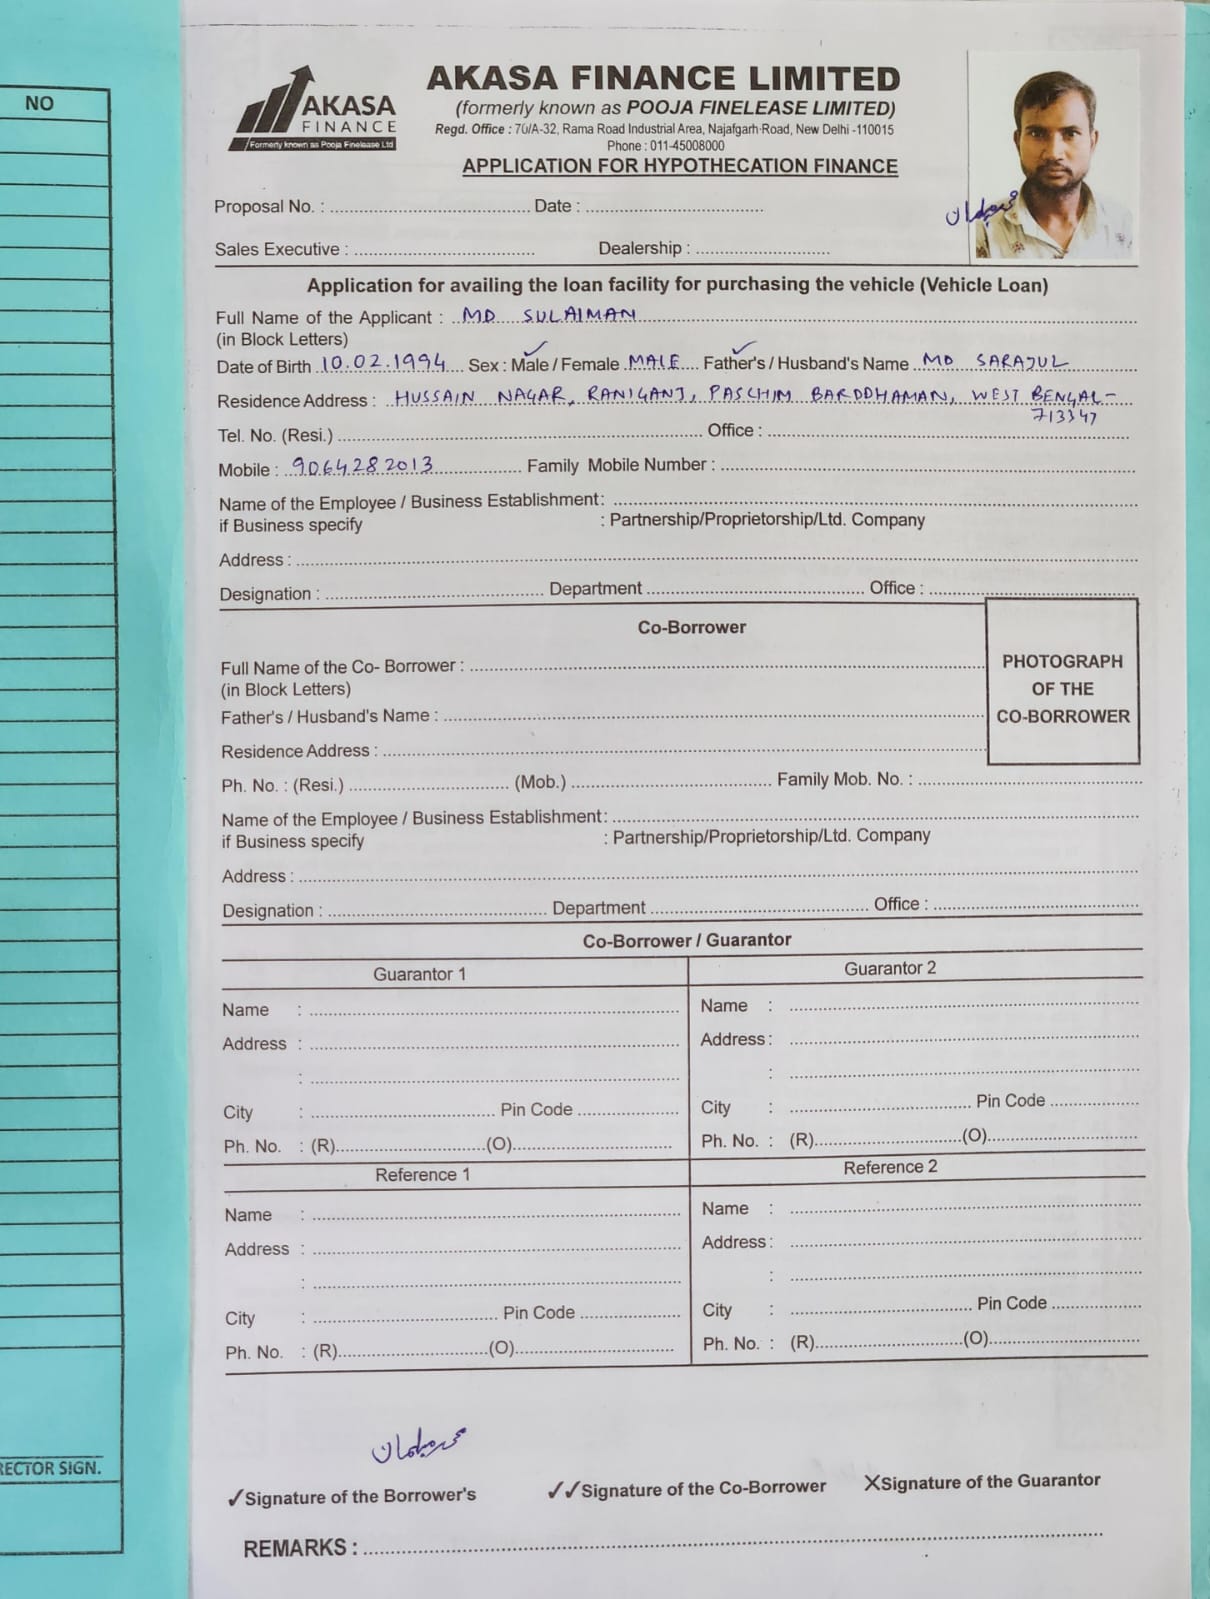 NO
RECTOR SIGN.
AKASA
FINANCE
Formerly known as Pooja Finelease Ltd
AKASA FINANCE LIMITED
(formerly known as POOJA FINELEASE LIMITED)
Regd. Office : 70/A-32, Rama Road Industrial Area, Najafgarh-Road, New Delhi -110015
Phone : 011-45008000
APPLICATION FOR HYPOTHECATION FINANCE
محمد سلیمان
Proposal No. : Date :
Sales Executive : Dealership :
Application for availing the loan facility for purchasing the vehicle (Vehicle Loan)
Full Name of the Applicant : MD SULAIMAN
(in Block Letters)
Date of Birth 10.02.1994 Sex : Male / Female MALE Father's / Husband's Name MD SARAJUL
Residence Address : HUSSAIN NAGAR, RANIGANJ, PASCHIM BARDDHAMAN, WEST BENGAL-
713347
Tel. No. (Resi.) Office :
Mobile : 9064282013 Family Mobile Number :
Name of the Employee / Business Establishment :
if Business specify : Partnership/Proprietorship/Ltd. Company
Address :
Designation : Department Office :
Co-Borrower
Full Name of the Co- Borrower :
(in Block Letters)
Father's / Husband's Name :
Residence Address :
PHOTOGRAPH
OF THE
CO-BORROWER
Ph. No. : (Resi.) (Mob.) Family Mob. No. :
Name of the Employee / Business Establishment :
if Business specify : Partnership/Proprietorship/Ltd. Company
Address :
Designation : Department Office :
Co-Borrower / Guarantor
Guarantor 1 Guarantor 2
Name : Name :
Address : Address :
: :
City : Pin Code City : Pin Code
Ph. No. : (R) (O) Ph. No. : (R) (O)
Reference 1 Reference 2
Name : Name :
Address : Address :
: :
City : Pin Code City : Pin Code
Ph. No. : (R) (O) Ph. No. : (R) (O)
محمد سلیمان
✓Signature of the Borrower's ✓✓Signature of the Co-Borrower XSignature of the Guarantor
REMARKS :